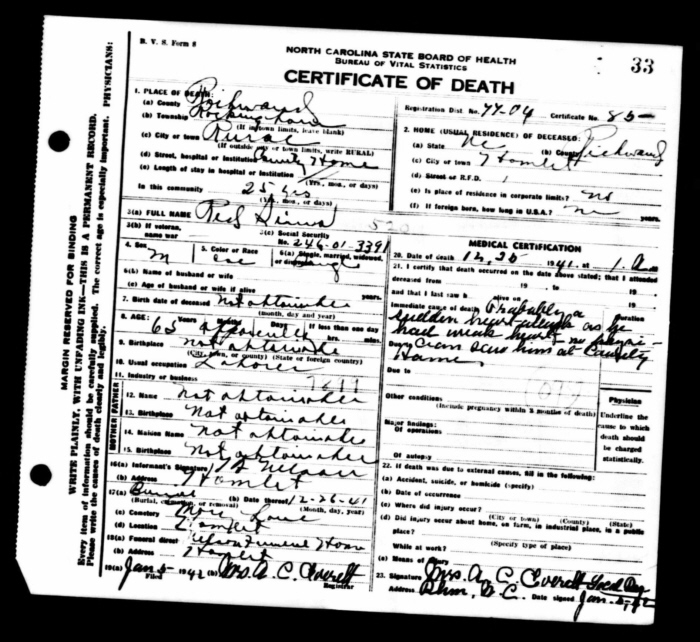 B. V. S. Form 8
NORTH CAROLINA STATE BOARD OF HEALTH
BUREAU OF VITAL STATISTICS
CERTIFICATE OF DEATH
33
MARGIN RESERVED FOR BINDING
WRITE PLAINLY, WITH UNFADING INK—THIS IS A PERMANENT RECORD.
Every item of information should be carefully supplied. The correct age is especially important. PHYSICIANS:
Please write the causes of death clearly and legibly.
1. PLACE OF DEATH:
(a) County Richmond
(b) Township Rockingham
(If in town limits, leave blank)
(c) City or town Rural
(If outside city or town limits, write RURAL)
(d) Street, hospital or institution County Home
(e) Length of stay in hospital or institution
(Yrs., mon. or days)
In this community 25 yrs
(Yrs., mon., or days)
Registration Dist. No. 77-04 Certificate No. 85
2. HOME (USUAL RESIDENCE) OF DECEASED:
(a) State NC (b) County Richmond
(c) City or town Hamlet
(d) Street or R.F.D.
(e) Is place of residence in corporate limits? No
(f) If foreign born, how long in U.S.A.? years.
3(a) FULL NAME Red Sims
3(b) If veteran, name war
3(c) Social Security No. 246-01-3391
4. Sex M
5. Color or Race Col
6(a) Single, married, widowed, or divorced Single
6(b) Name of husband or wife
6(c) Age of husband or wife if alive years
7. Birth date of deceased Not obtainable
(month, day and year)
8. AGE: Years Months Days If less than one day
65 apparently hrs. min.
9. Birthplace Not obtainable
(City, town, or county) (State or foreign country)
10. Usual occupation Laborer
11. Industry or business
FATHER
12. Name Not obtainable
13. Birthplace Not obtainable
MOTHER
14. Maiden Name Not obtainable
15. Birthplace Not obtainable
16(a) Informant's Signature
(b) Address Hamlet
17(a) Burial (b) Date thereof 12-26-41
(Burial, cremation, or removal) (Month, day, year)
(c) Cemetery
(d) Location Hamlet
18(a) Funeral director Funeral Home
(b) Address Hamlet
19(a) Jan 5 1942 (b) Mrs. A. C. Everett
Filed Registrar
MEDICAL CERTIFICATION
20. Date of death 12, 25 1941, at 1. a m
21. I certify that death occurred on the date above stated; that I attended
deceased from 19 to 19
and that I last saw h alive on 19
Immediate cause of death Probably a Duration
sudden heart attack as he
had weak heart no physi-
Due to cian saw him at County
Home
Due to
Other conditions
(Include pregnancy within 3 months of death)
Major findings:
Of operations
Of autopsy
Physician
Underline the cause to which death should be charged statistically.
22. If death was due to external causes, fill in the following:
(a) Accident, suicide, or homicide (specify)
(b) Date of occurrence
(c) Where did injury occur?
(City or town) (County) (State)
(d) Did injury occur about home, on farm, in industrial place, in a public
place?
(Specify type of place)
While at work?
(e) Means of injury
23. Signature Mrs. A. C. Everett Local Reg
Address N. C. Date signed Jan. 5, 42